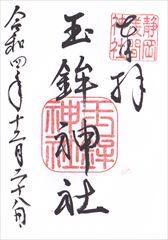 奉拝
静岡
浅間
神社
玉鉾神社
玉鉾
神社
令和四年十二月二十八日